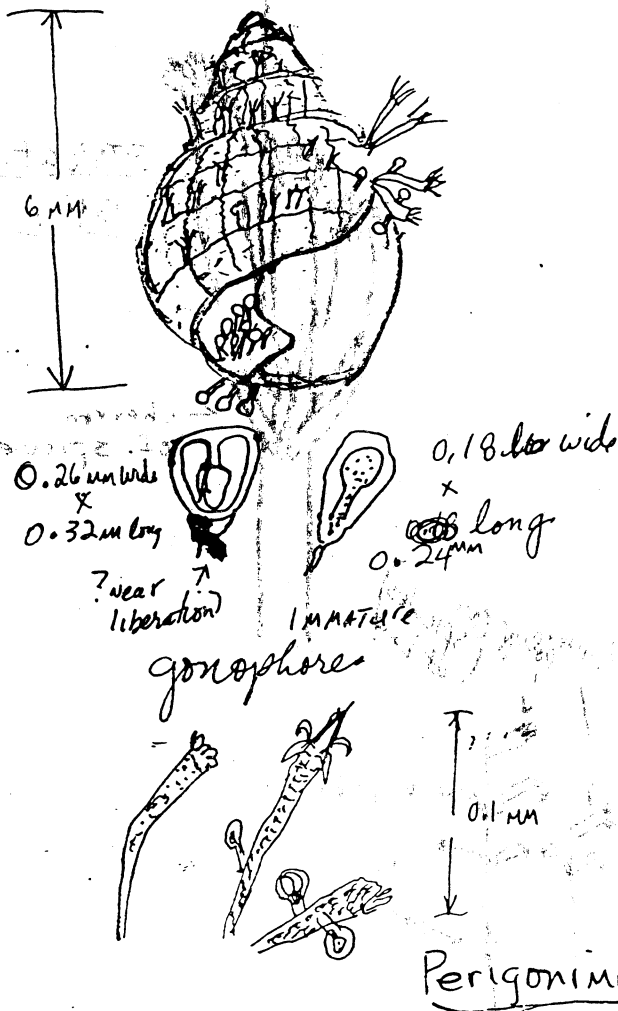 6 MM
0.26 mm wide
x
0.32 m long
? near
liberation
0.18 wide
x
long
0.24 mm
IMMATURE
gonophores
0.1 MM
Perigonim